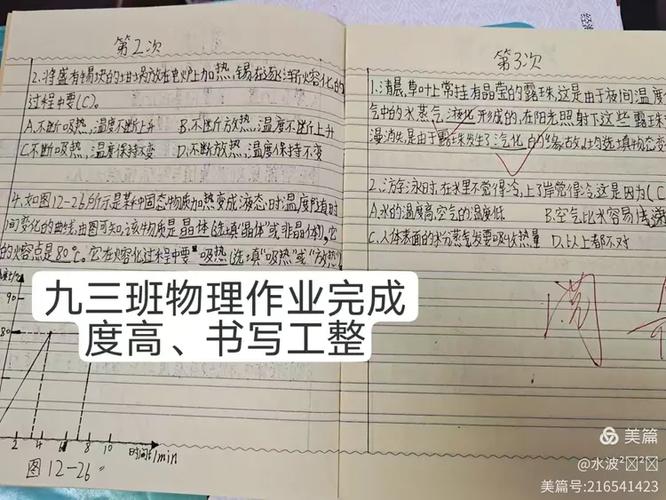 第2次
2.将盛有锡块的坩埚放在电炉上加热,锡在逐渐熔化的
过程中要(C)。
A.不断吸热,温度不断上升 B.不断放热,温度不断上升
C.不断吸热,温度保持不变 D.不断放热,温度保持不变
4.如图12-26所示是某种固态物质加热变成液态时温度随时
间变化的曲线,由图可知,该物质是晶体(选填"晶体"或"非晶体"),它
的熔点是80℃。它在熔化过程中要"吸热"(选填"吸热"或"放热")
90
80
2 4 6 8 10 时间t/min
图12-26
第3次
1.清晨,草叶上常挂有晶莹的露珠,这是由于夜间温度
气中的水蒸气液化形成的,在阳光照射下这些露珠
漫消失,是由于露珠发生了汽化的缘故,(均选填物态变
2.游泳时,在水里不觉得冷,上了岸觉得冷,这是因为(C
A.水的温度高,空气的温度低 B.空气比水容易传
C.人体表面的水分蒸气发要吸收热量 D.以上都不对
阅
九三班物理作业完成
度高、书写工整
美篇
@水波²
美篇号:216541423